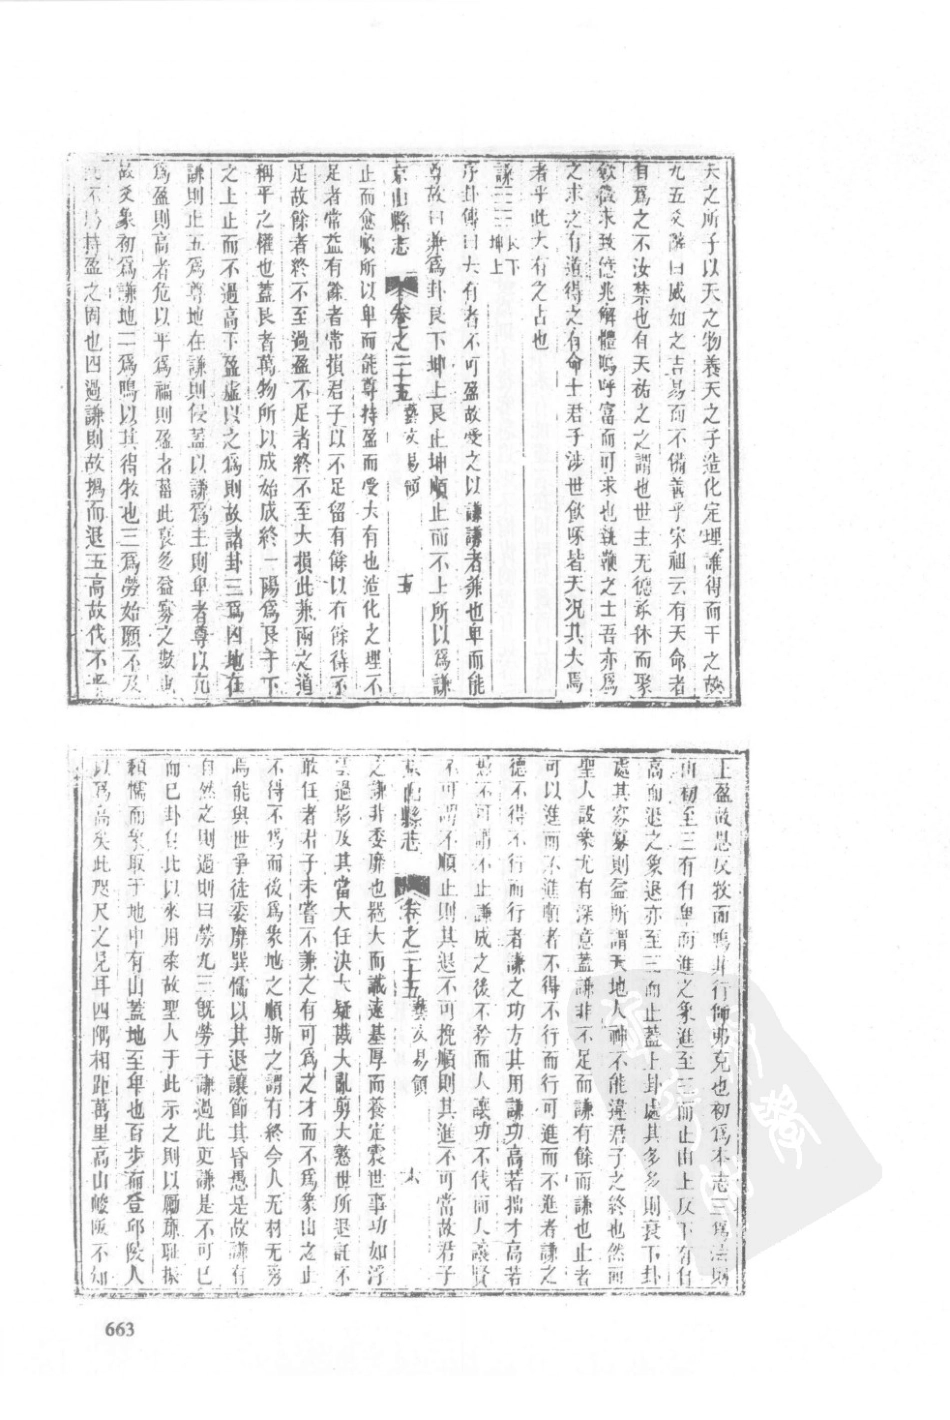 天之所子以天之物養天之子造化定理誰得而干之故
九五爻辭曰威如之吉易而不備善乎宋祖云有天命者
自爲之不汝禁也有天祐之之謂也世主无德承休而聚
斂徵求致億兆解體嗚呼富而可求也執鞭之士吾亦爲
之求之有道得之有命士君子涉世飲啄皆天况其大焉
者乎此大有之占也
謙 艮下 坤上
序卦傳曰大有者不可盈故受之以謙謙者兼也卑而能
尊故曰兼爲卦艮下坤上艮止坤順止而不上所以爲謙
京山縣志 卷之二十五 藝文易領 五
止而愈順所以卑而能尊持盈而受大有也造化之理不
足者常益有餘者常損君子以不足留有餘以有餘待不
足故餘者終不至過盈不足者終不至大損此兼兩之道
稱平之權也蓋艮者萬物所以成始成終一陽爲艮主下
之上止而不過高下盈虛以之爲則故諸卦三爲凶地在
謙則止五爲尊地在謙則侵蓋以謙爲主則卑者尊以亢
爲盈則高者危以平爲福則盈者菑此裒多益寡之數也
故爻象初爲謙地二爲鳴以其得牧也三爲勞始願不及
此不爲持盈之固也四過謙則故撝而退五高故伐不

上盈故思反牧而鳴非行師弗克也初爲本志三爲
由初至三有自卑而進之象進至三而止由上反下有自
高而退之象退亦至三而止蓋上卦處其多多則衰下卦
處其寡寡則益所謂天地人神不能違君子之終也然而
聖人設象尤有深意蓋謙非不足而謙有餘而謙也止者
可以進而不進順者不得不行而行可進而不進者謙之
德不得不行而行者謙之功方其用謙功高若拙才高若
不可謂不止謙成之後不矜而人讓功不伐而人讓賢
不可謂不順止則其退不可挽順則其進不可當故君子
京山縣志 卷之二十五 藝文易領 六
之謙非委靡也器大而識遠基厚而養定震世事功如浮
雲過眥及其當大任決大疑戡大亂剪大憝世所退託不
敢任者君子未嘗不謙之有可爲之才而不爲象山之止
不得不爲而後爲象地之順斯之謂有終今人无材无勞
焉能與世爭徒委靡巽懦以其退讓節其昏憊是故謙有
自然之則過則曰勞九三旣勞于謙過此更謙是不可已
而已卦自比以來用柔故聖人于此示之則以勵廉耻振
頹懦而象取于地中有山蓋地至卑也百步而登邱陵人
以爲高矣此咫尺之見耳四隅相距萬里高山峻阪不知
663